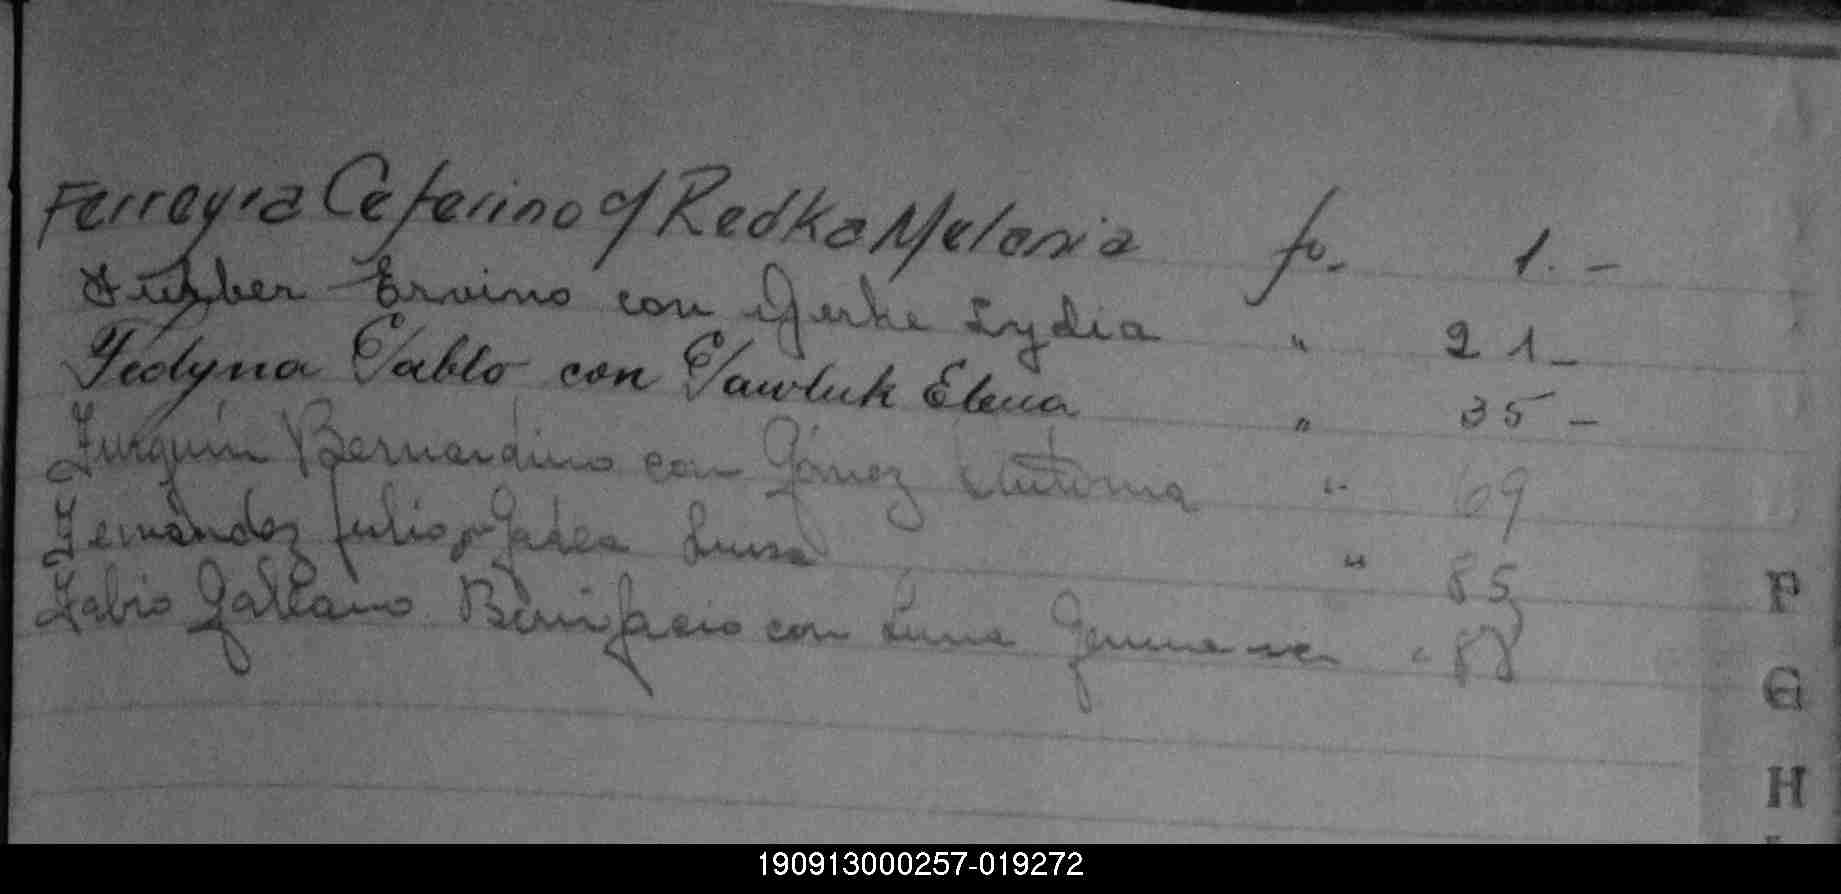 Ferreyra Ceferino c/ Redka Melania fo. 1.-
Ervino con Gerke Lydia " 21-
Fedyna Pablo con Pawluk Elena " 35-
Furquin Bernardino con Gómez Antonia " 69
Fernández Julio Gadea Luisa " 85
Fabio Galeano Bonifacio con Luna " 88
F
G
H
190913000257-019272